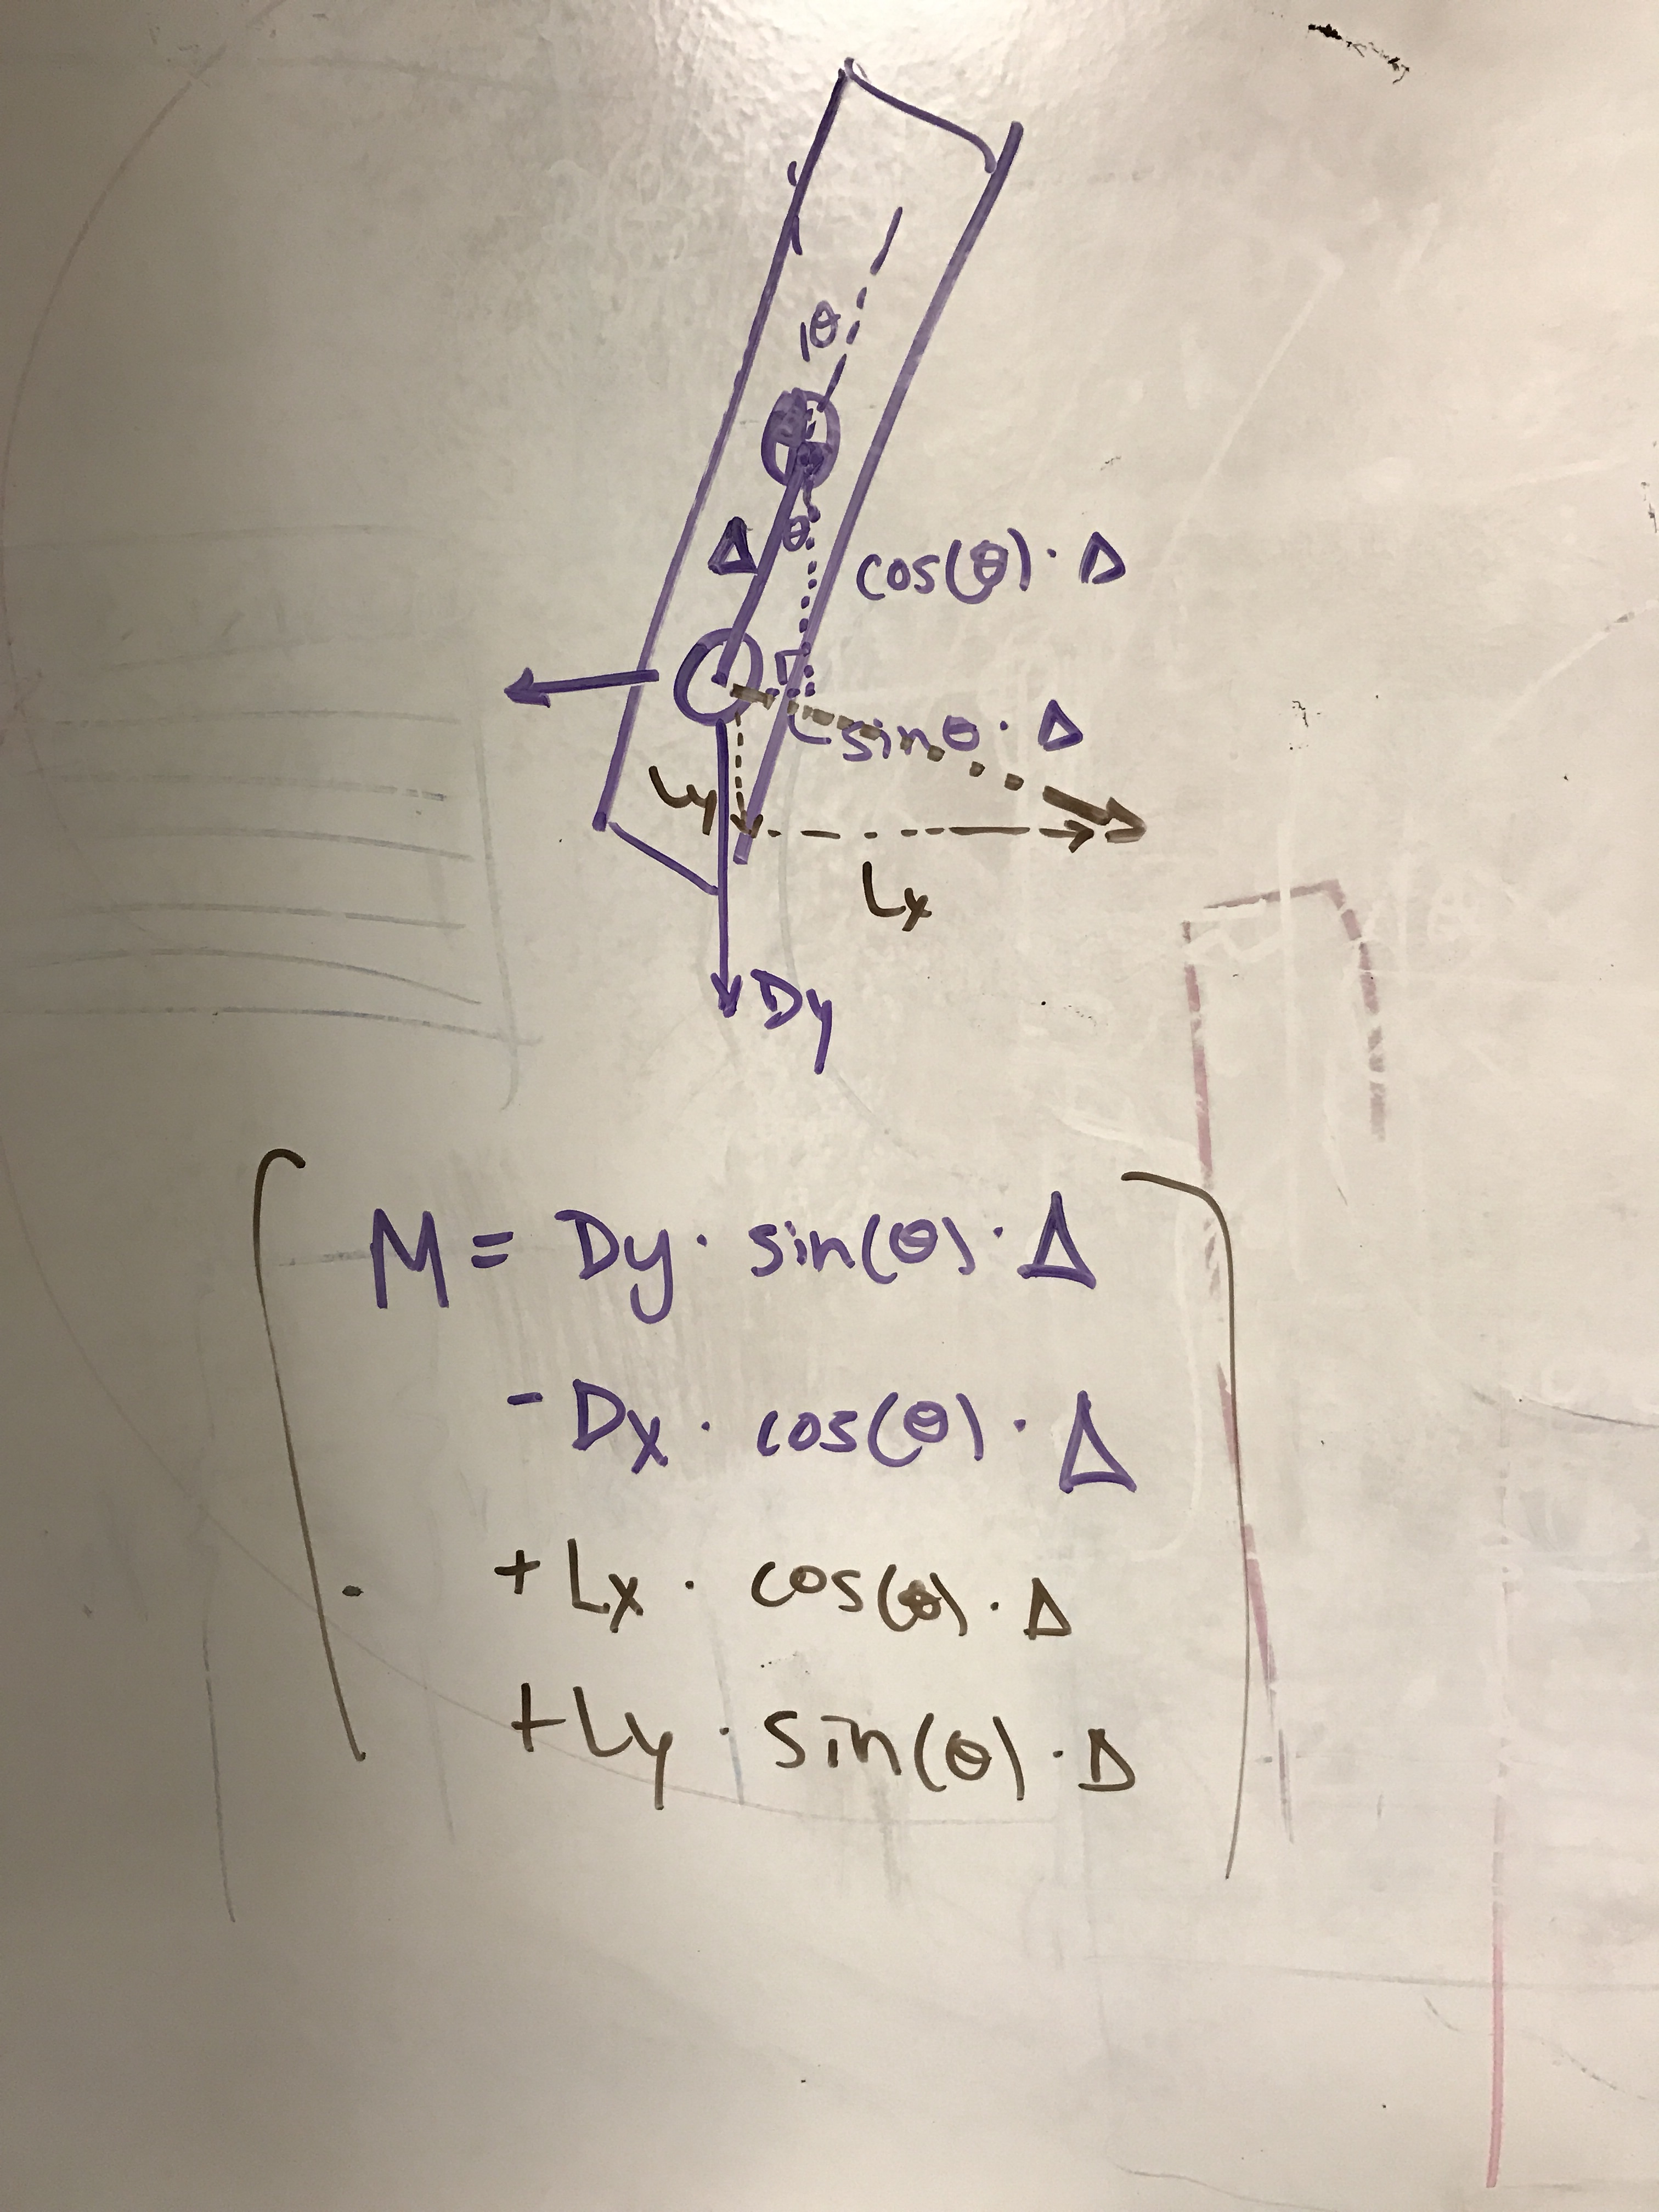 θ
Δ θ cos(θ) · Δ
sinθ · Δ
Ly
Lx
Dy
M = Dy · sin(θ) · Δ
- Dx · cos(θ) · Δ
+ Lx · cos(θ) · Δ
+ Ly · sin(θ) · Δ